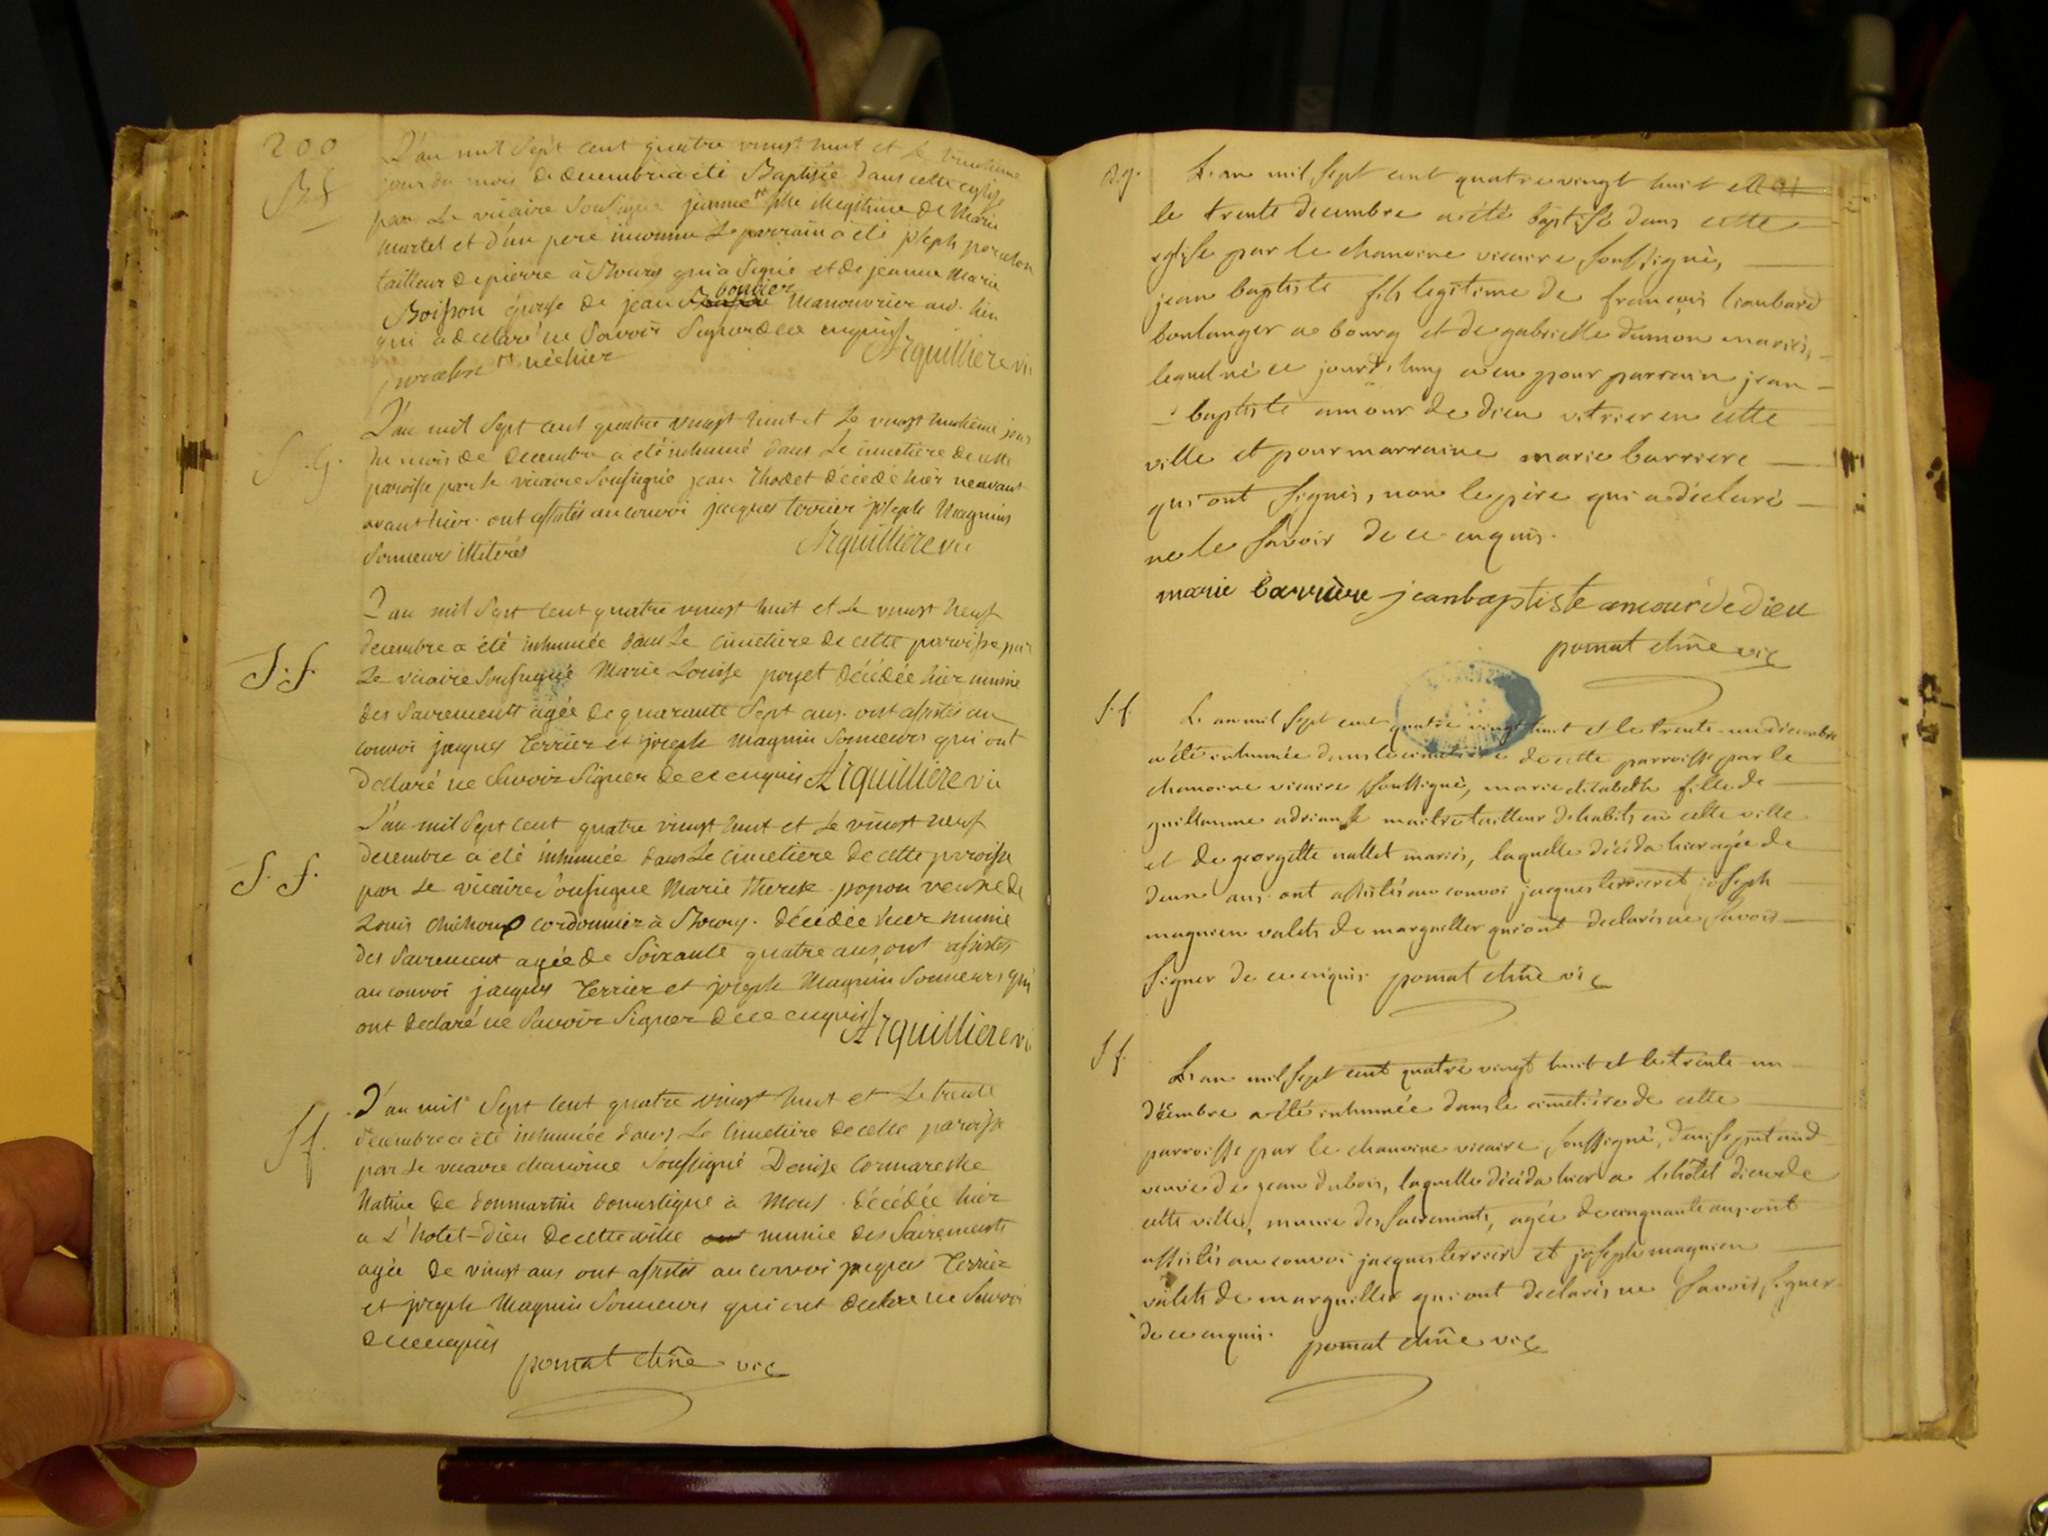 200
Bf
L'an mil sept cent quatre vingt huit et le trentieme
jour du mois de decembre a été Baptisée dans cette eglise
par Le vicaire Soussigné jeanne fille illegitime de Marie
martel et d'un pere inconnu Le parrain a été joseph
tailleur de pierre à Bourg qui a signé et de jeanne Marie
Boisson épouse de jean bouvier Manouvrier aud. lieu
qui a declaré ne Savoir Signer de ce enquise
née hier Arquilliere vic
S. G.
L'an mil Sept cent quatre vingt huit et Le vingt huitieme jour
du mois de decembre a été inhumé dans Le cimetiere de cette
paroisse par le vicaire Soussigné jean Thodet décédé hier né avant
avant hier. ont assistés au convoi jacques terrier joseph Magnin
Sonneurs illiterés Arquilliere vic
S. f.
L'an mil Sept cent quatre vingt huit et Le vingt neuf
decembre a été inhumée dans Le cimetiere de cette paroisse par
Le vicaire Soussigné Marie Louise poyet décédée hier munie
des Sacrements agée de quarante Sept ans. ont assistés au
convoi jacques Terrier et joseph Magnin Sonneurs qui ont
declaré ne Savoir Signer de ce enquis Arquilliere vic
S. f.
L'an mil Sept cent quatre vingt huit et Le vingt neuf
decembre a été inhumée dans Le cimetiere de cette paroisse
par Le vicaire Soussigné Marie therese popon veuve de
Louis cordonnier à Bourg. décédée hier munie
des Sacrement agée de Soixante quatre ans, ont assistés
au convoi jacques Terrier et joseph Magnin Sonneurs qui
ont declaré ne Savoir Signer de ce enquis
Arquilliere vi
S f.
L'an mil Sept cent quatre vingt huit et Le trente
decembre a été inhumée dans Le Cimetiere de cette paroisse
par Le vicaire chanoine Soussigné Denise
Native de donmartin domestique à décédée hier
a L'hotel-dieu de cette ville munie des Sacrements
agée de vingt ans ont assistés au convoi jacques Terrier
et joseph Magnin Sonneurs qui ont declaré ne Savoir
de ce enquis
pomat chne vic
B. g.
L'an mil sept cent quatre vingt huit et
le trente decembre a été baptisé dans cette
eglise par le chanoine vicaire soussigné,
jean baptiste fils legitime de françois liaubard
boulanger a bourg et de gabrielle dumon mariés,
lequel né ce jourd'huy a eu pour parrain jean
baptiste amour de dieu vitrier en cette
ville et pour marraine marie barriere
qui ont signés, non le pere qui a déclaré
ne le savoir de ce enquis.
marie barrière jean baptiste amour de dieu
pomat chne vic
S. f.
L'an mil sept cent quatre vingt huit et le trente-un decembre
a été inhumée dans le cimetiere de cette parroisse par le
chanoine vicaire soussigné, marie elizabeth fille de
guillaume maitre tailleur d'habits en cette ville
et de georgette nallet mariés, laquelle décéda hier agée de
deux ans. ont assistés au convoi jacques terrier et joseph
magnien valets de marguiller qui ont declarés ne savoir
signer de ce enquis. pomat chne vic
S f.
L'an mil sept cent quatre vingt huit et le trente un
décembre a été inhumée dans le cimetiere de cette
parroisse par le chanoine vicaire soussigné, denise
veuve de jean dubois, laquelle décéda hier a L'hôtel dieu de
cette ville, munie des sacrements, agée de cinquante ans. ont
assistés au convoi jacques terrier et joseph magnien
valets de marguiller qui ont declarés ne savoir signer
de ce enquis. pomat chne vic